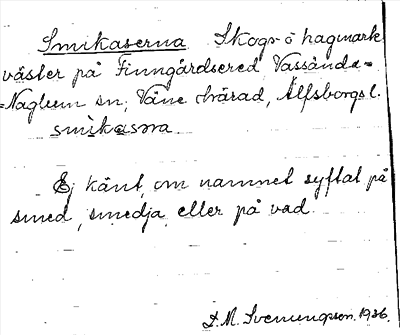 Smikaserna Skogs- o hagmark
väster på Finngårdsered Vassända=
=Naglum sn, Väne härad, Älfsborgs l.
smikasna
Ej känt, om namnet syftat på
smed, smedja eller på vad.
D.M. Svenungsson. 1926.